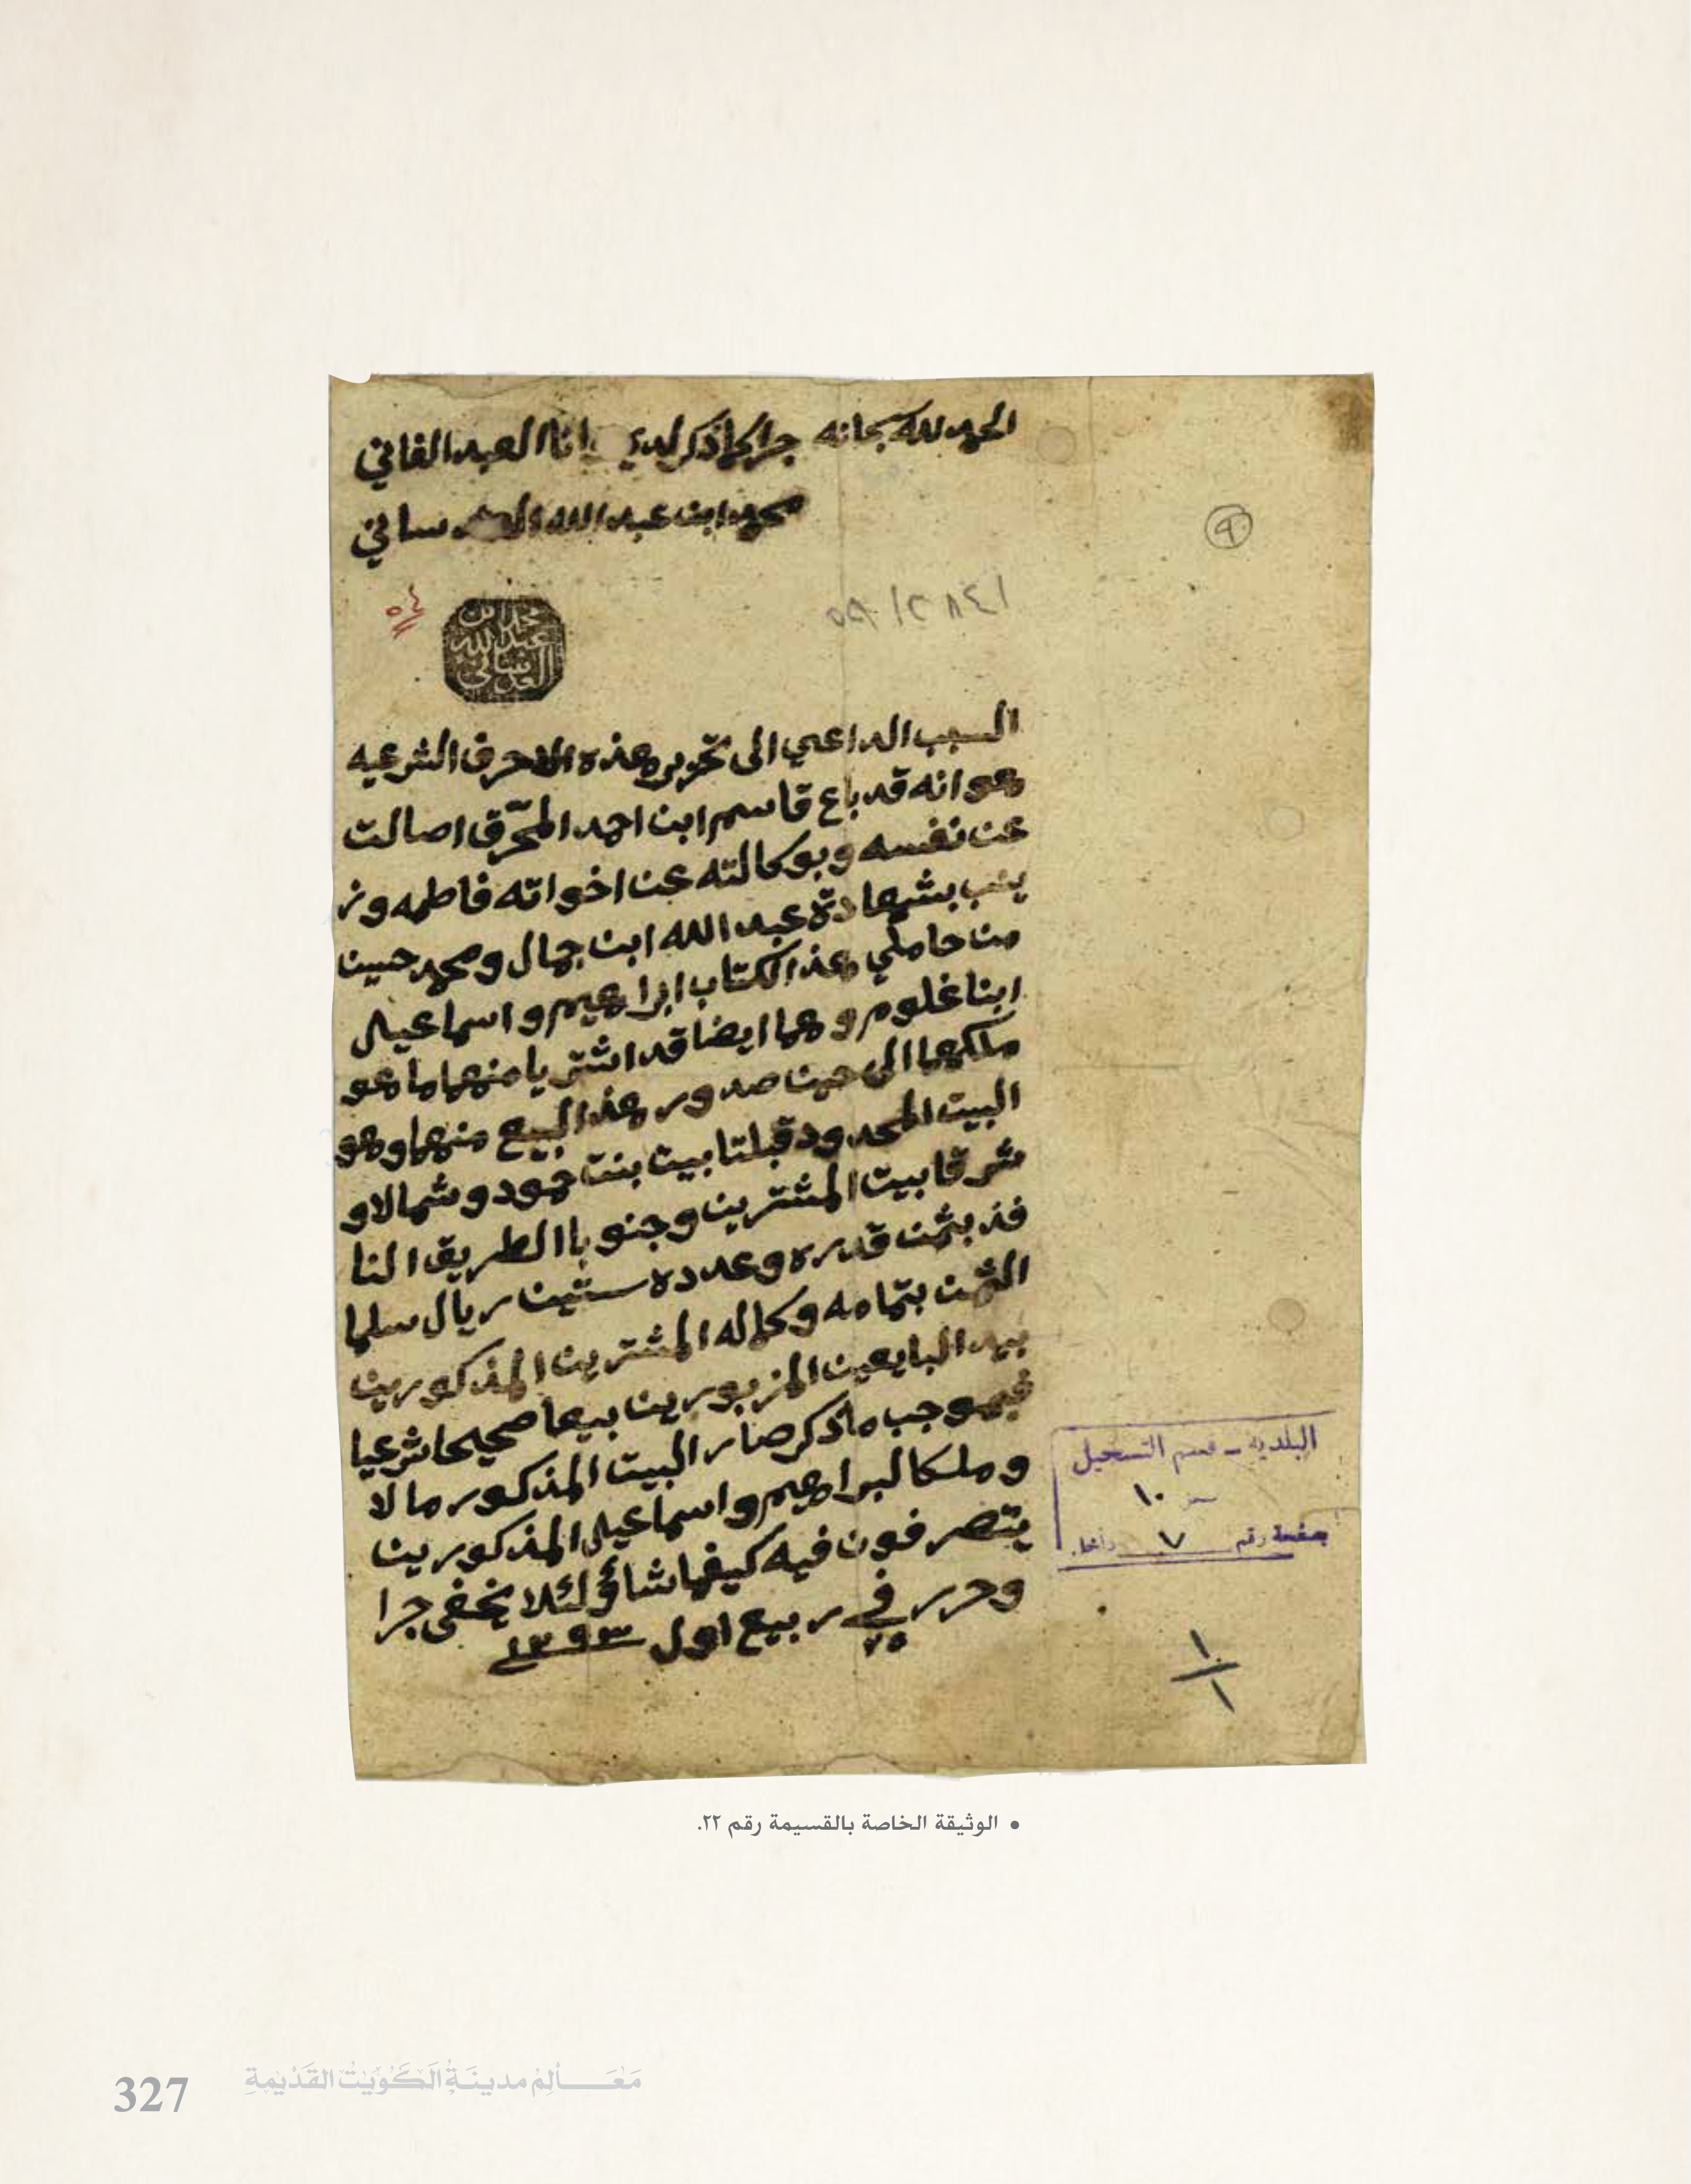 الحمد لله سبحانه
جرا كما ذكر لدي وانا العبد الفاني
محمد ابن عبد الله العدساني
محمد ابن
عبد الله
العدساني
٩
السبب الداعي الى تحرير هذه الاحرف الشرعيه
هو انه قد باع قاسم ابن احمد المحرق اصالت
عن نفسه وبوكالته عن اخواته فاطمه وز
ينب بشهادة عبد الله ابن جمال ومحمد حسين
من حاملي هذا الكتاب ابراهيم واسماعيل
ابنا غلوم وهما ايضا قد اشتريا منهما ما هو
ملكهما الى حين صدور هذا البيع منهما وهو
البيت المحدود قبلتا بيت بنت حمود وشمالا و
شرقا بيت المشترين وجنوبا الطريق النا
فذ بثمن قدره وعدده ستين ريال سلما
الثمن بتمامه وكماله المشترين المذكورين
بيد البايعين المزبورين بيعا صحيحا شرعيا
فبموجب ما ذكر صار البيت المذكور مالا
وملكا لبراهيم واسماعيل المذكورين
يتصرفون فيه كيفما شاؤ لئلا يخفى جرا
وحرر في ٢٥ ربيع اول ١٢٩٣
البلدية - قسم التسجيل
١٠
صفحة رقم ٧
١
١
• الوثيقة الخاصة بالقسيمة رقم ٢٢.
مَعَالِم مدينَة الكُوَيْت القَدْيمَة
327